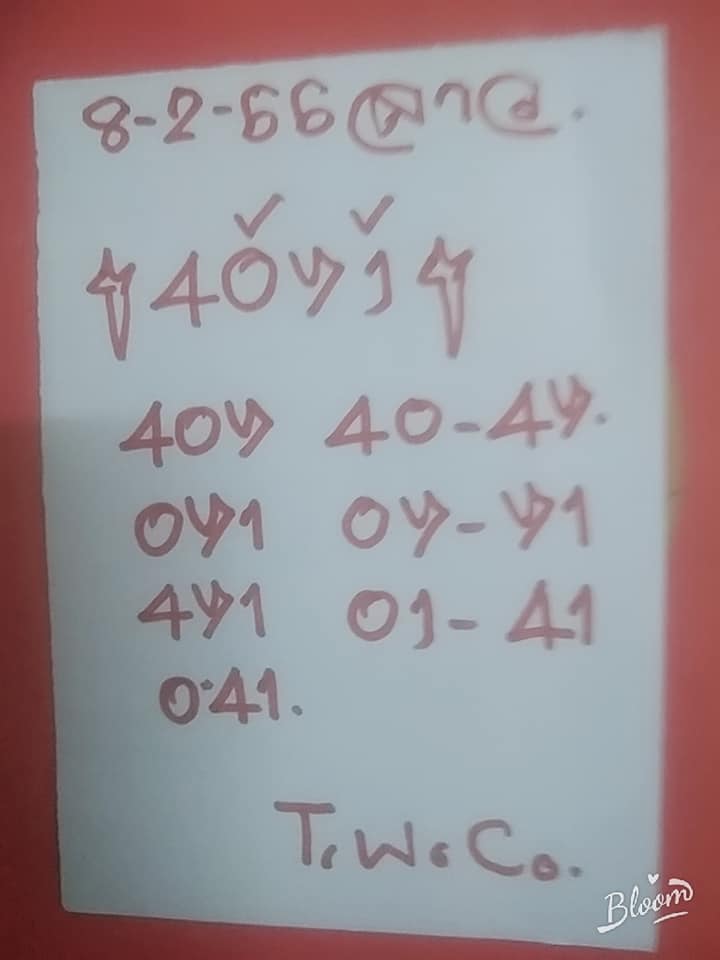 8-2-66 ลาว.
4071
407 40-47.
071 07-71
471 01-41
041.
T.W.Co.
Bloom